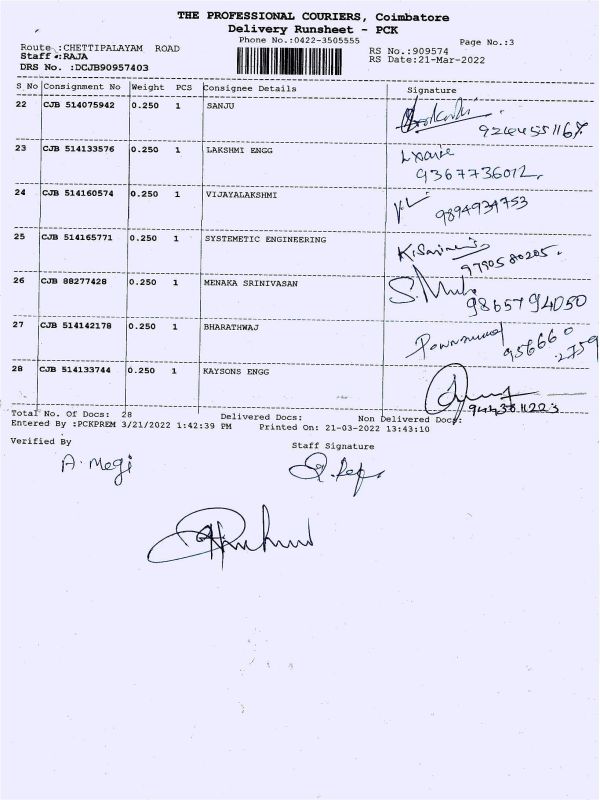 THE PROFESSIONAL COURIERS, Coimbatore
Delivery Runsheet - PCK
Phone No.:0422-3505555
Page No.:3
Route :CHETTIPALAYAM ROAD
RS No.:909574
Staff :RAJA
RS Date:21-Mar-2022
DRS No. :DCJB90957403
S No Consignment No Weight PCS Consignee Details Signature
22 CJB 514075942 0.250 1 SANJU
23 CJB 514133576 0.250 1 LAKSHMI ENGG
9367736012
24 CJB 514160574 0.250 1 VIJAYALAKSHMI
9894934753
25 CJB 514165771 0.250 1 SYSTEMETIC ENGINEERING
9790580205.
26 CJB 88277428 0.250 1 MENAKA SRINIVASAN
9865794050
27 CJB 514142178 0.250 1 BHARATHWAJ
956660
2759
28 CJB 514133744 0.250 1 KAYSONS ENGG
Total No. Of Docs: 28 Delivered Docs: Non Delivered Docs:
Entered By :PCKPREM 3/21/2022 1:42:39 PM Printed On: 21-03-2022 13:43:10
Verified By
Staff Signature
A. Megi